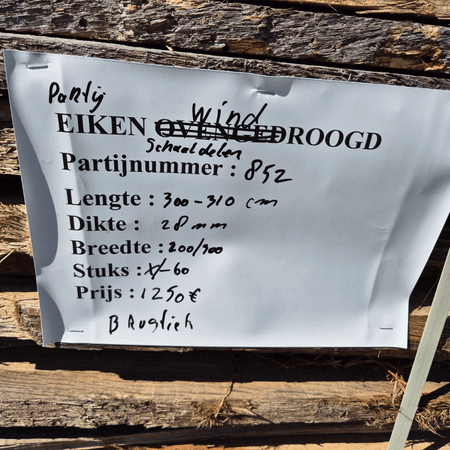 Partij
wind
EIKEN OVENGEDROOGD
Schaaldelen
Partijnummer : 852
Lengte : 300-310 cm
Dikte : 28 mm
Breedte : 200/900
Stuks : +/- 60
Prijs : 1250 €